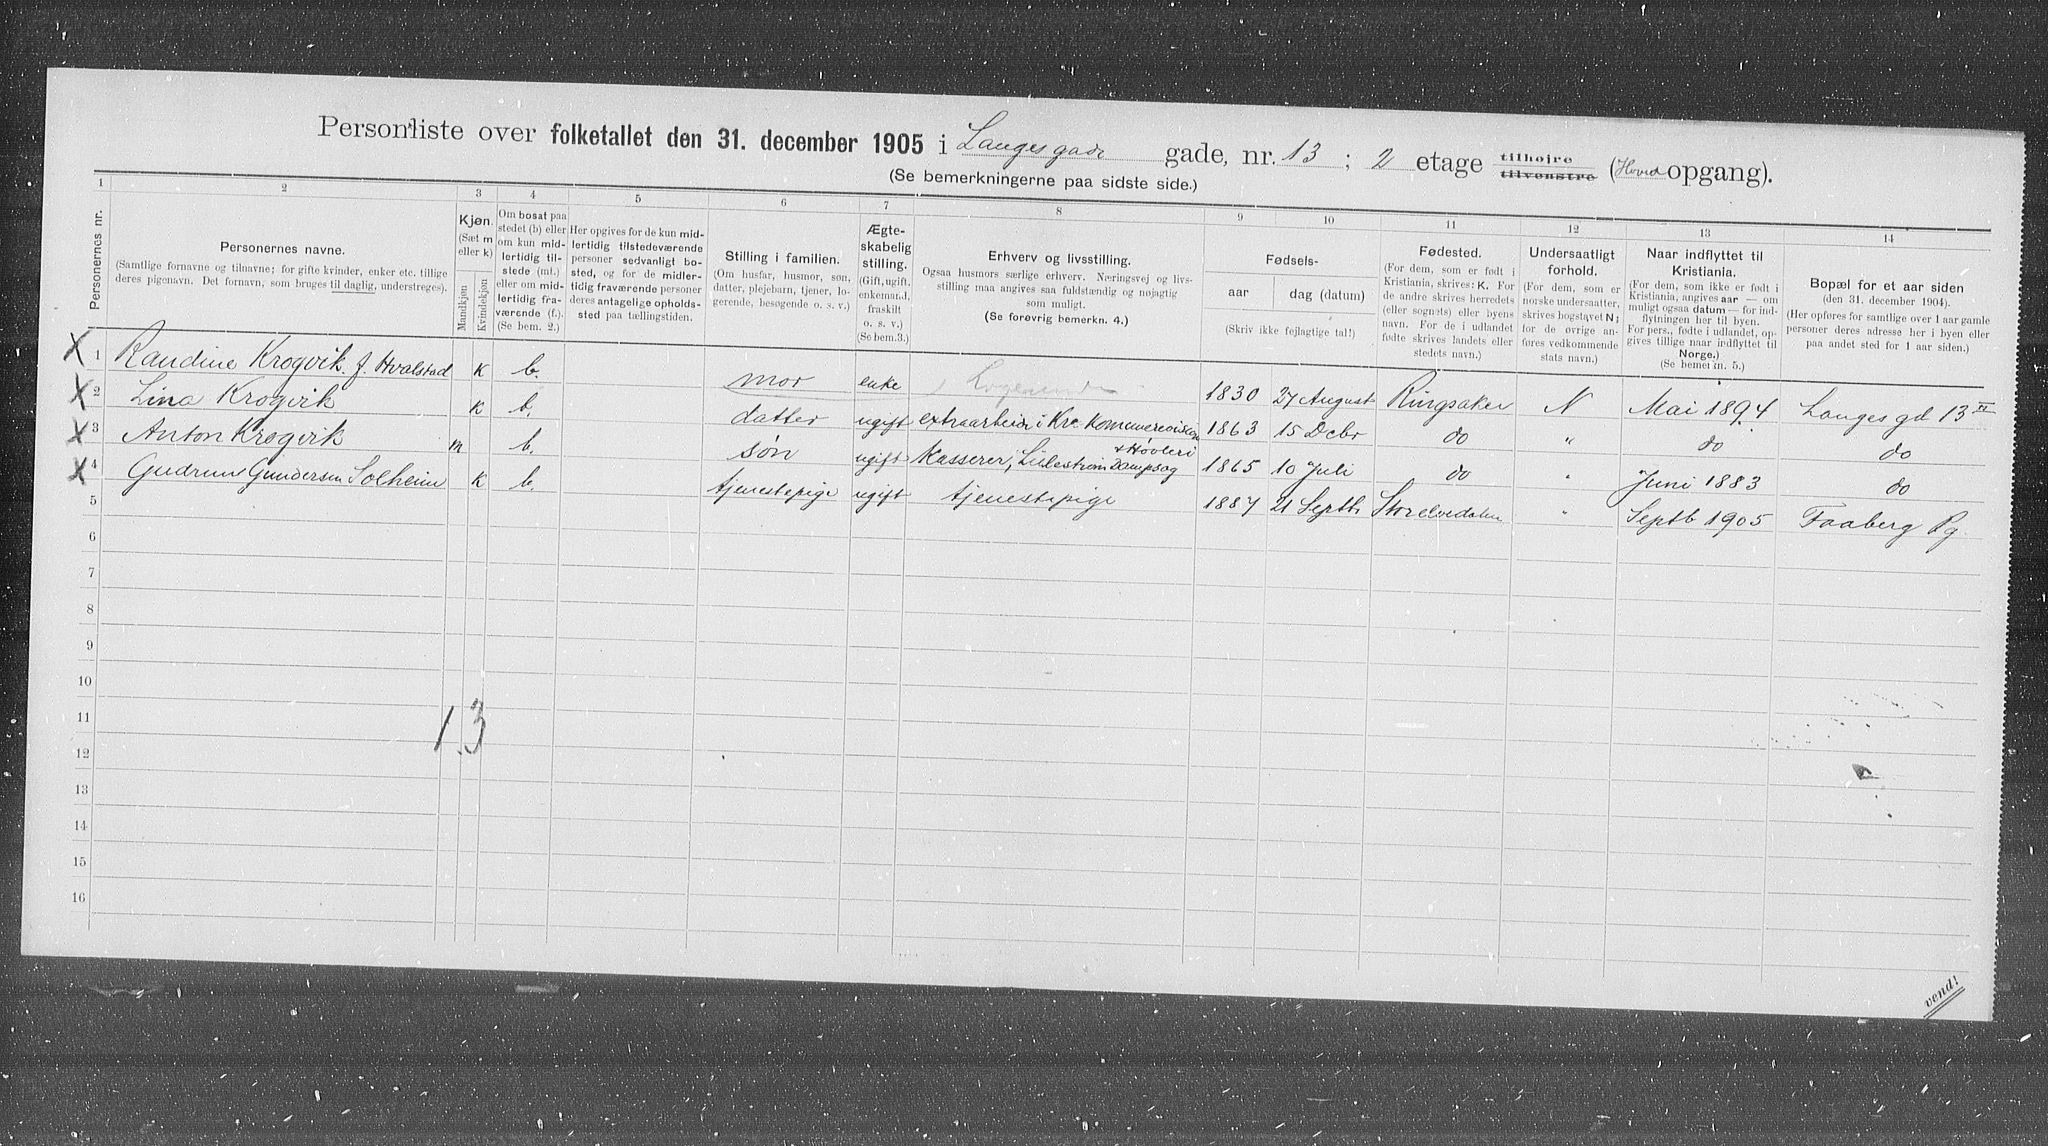 Personliste over folketallet den 31. december 1905 i Langesgade gade, nr. 13 ; 2 etage tilhøire tilvenstre (Hoved opgang).
(Se bemerkningerne paa sidste side.)
1 2 3 4 5 6 7 8 9 10 11 12 13 14
Personernes nr.
Personernes navne.
(Samtlige fornavne og tilnavne; for gifte kvinder, enker etc. tillige
deres pigenavn. Det fornavn, som bruges til daglig, understreges).
Kjøn.
(Sæt m
eller k)
Mandkjøn
Kvindekjøn
Om bosat paa
stedet (b) eller
om kun mid-
lertidig til-
stede (mt.)
eller om mid-
lertidig fra-
værende (f.).
(Se bem. 2.)
Her opgives for de kun mid-
lertidig tilstedeværende
personer sedvanlig bo-
sted, og for de midler-
tidig fraværende personer
deres antagelige opholds-
sted paa tællingstiden.
Stilling i familien.
(Om husfar, husmor, søn,
datter, plejebarn, tjener, lo-
gerende, besøgende o. s. v.)
Ægte-
skabelig
stilling.
(Gift, ugift,
enkemand,
fraskilt
o. s. v.)
(Se bem.3.)
Erhverv og livsstilling.
Ogsaa husmors særlige erhverv. Næringsvej og livs-
stilling maa angives saa fuldstændig og nøjagtig
som muligt.
(Se forøvrig bemerkn. 4.)
Fødsels-
aar
dag (datum)
(Skriv ikke fejlagtige tal!)
Fødested.
(For dem, som er født i
Kristiania, skrives: K. For
de andre skrives herredets
(eller sognets) eller byens
navn. For de i udlandet
fødte skrives landets eller
stedets navn.)
Undersaatligt
forhold.
(For dem, som er
norske undersaatter,
skrives bogstavet N;
for de øvrige an-
føres vedkommende
stats navn.)
Naar indflyttet til
Kristiania.
(For dem, som ikke er født i
Kristiania, angives aar — om
muligt ogsaa datum — for ind-
flytningen her til byen.
For pers., fødte i udlandet, op-
gives tillige naar indflyttet til
Norge.)
(Se bemerkn. 5.)
Bopæl for et aar siden
(den 31. december 1904).
(Her opføres for samtlige over 1 aar gamle
personer deres adresse her i byen eller
paa andet sted for 1 aar siden.)
X 1 Randine Krogvik f. Hvalstad k b. mor enke 1830 27 August Ringsaker N Mai 1894 Langes gd 13 II
X 2 Lina Krogvik k b. datter ugift extraarbeide i Kra. Kommunerevision 1863 15 Debr do " do do
X 3 Anton Krogvik m b. søn ugift Kasserer, Lillestrøm Dampsag & Høvleri 1865 10 Juli do " Juni 1883 do
X 4 Gudrun Gundersen Solheim k b. tjenestepige ugift tjenestepige 1887 21 Septb. Storelvedalen " Septb 1905 Faaberg Pg.
5
6
7
8
9
10
11
12
13
14
15
16
1 3
vend!